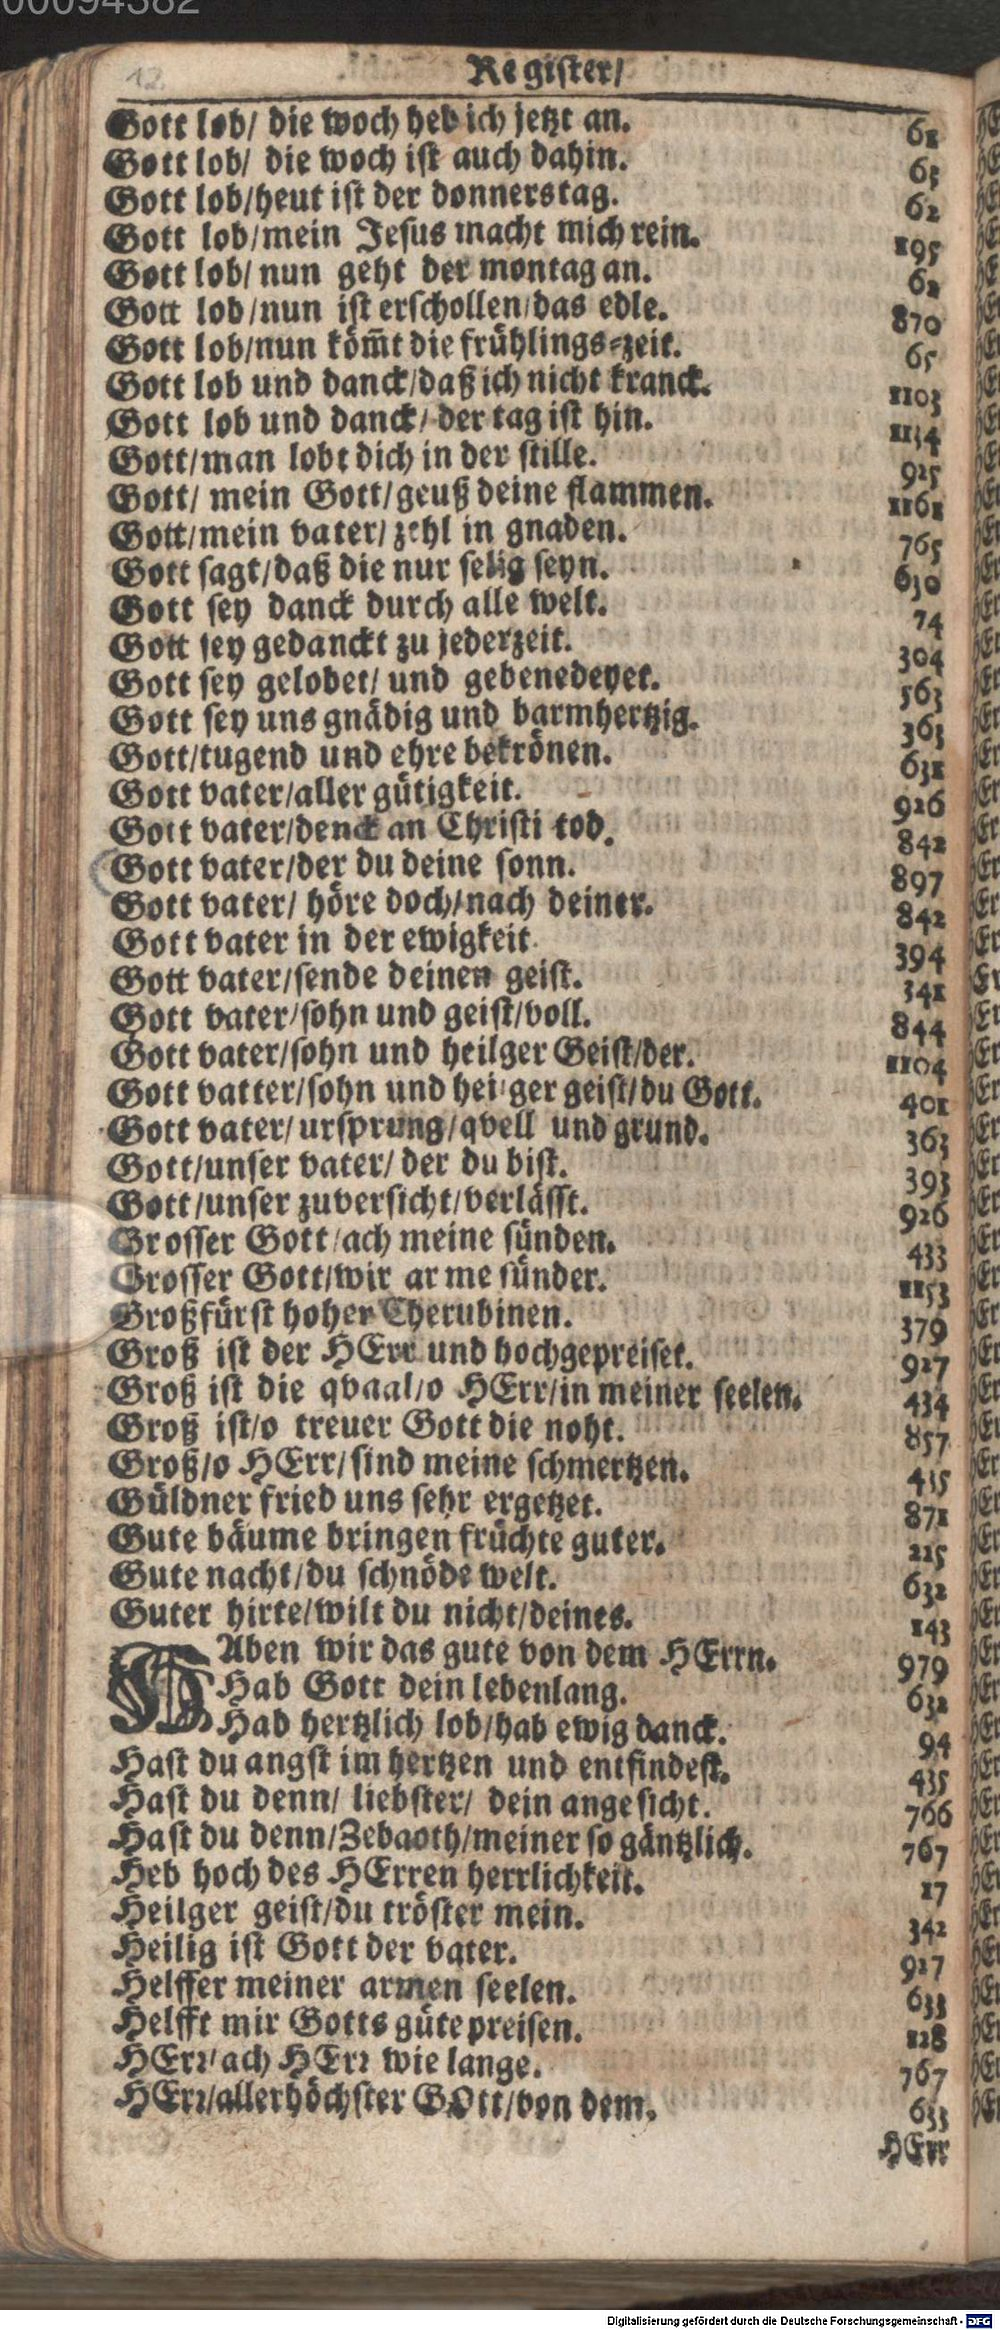 00094382
12
Register/
Gott lob/ die woch heb ich jetzt an. 61
Gott lob/ die woch ist auch dahin. 63
Gott lob/heut ist der donnerstag. 62
Gott lob/mein Jesus macht mich rein. 195
Gott lob/ nun geht der montag an. 62
Gott lob/nun ist erschollen/das edle. 870
Gott lob/nun köm̃t die frühlings-zeit. 65
Gott lob und danck/daß ich nicht kranck. 1103
Gott lob und danck/ der tag ist hin. 1134
Gott/man lobt dich in der stille. 925
Gott/ mein Gott/geuß deine flammen. 1161
Gott/mein vater/ zehl in gnaden. 765
Gott sagt/daß die nur selig seyn. 630
Gott sey danck durch alle welt. 74
Gott sey gedanckt zu jederzeit. 304
Gott sey gelobet/ und gebenedeyet. 563
Gott sey uns gnädig und barmhertzig. 363
Gott/tugend und ehre bekrönen. 631
Gott vater/aller gütigkeit. 926
Gott vater/denck an Christi tod. 842
Gott vater/der du deine sonn. 897
Gott vater/ höre doch/nach deiner. 842
Gott vater in der ewigkeit 394
Gott vater/sende deinen geist. 341
Gott vater/sohn und geist/voll. 844
Gott vater/sohn und heilger Geist/der. 1104
Gott vatter/sohn und heilger geist/du Gott. 401
Gott vater/ ursprung/qvell und grund. 363
Gott/unser vater/ der du bist. 393
Gott/unser zuversicht/verlässt. 926
Grosser Gott/ach meine sünden. 433
Grosser Gott/wir arme sünder. 1153
Großfürst hoher Cherubinen. 379
Groß ist der HErr und hochgepreiset. 927
Groß ist die qvaal/o HErr/in meiner seelen. 434
Groß ist/o treuer Gott die noht. 857
Groß/o HErr/sind meine schmertzen. 435
Güldner fried uns sehr ergetzet. 871
Gute bäume bringen früchte guter. 225
Gute nacht/du schnöde welt. 632
Guter hirte/wilt du nicht/deines. 143
HAben wir das gute von dem HErrn. 979
Hab Gott dein lebenlang. 632
Hab hertzlich lob/hab ewig danck. 94
Hast du angst im hertzen und entfindest. 435
Hast du denn/ liebster/ dein angesicht. 766
Hast du denn/Zebaoth/meiner so gäntzlich. 767
Heb hoch des HErren herrlichkeit. 17
Heilger geist/du tröster mein. 342
Heilig ist Gott der vater. 927
Helffer meiner armen seelen. 633
Helfft mir Gotts güte preisen. 128
HErr/ach HErr wie lange. 767
HErr/allerhöchster GOtt/von dem. 633
HErr
Digitalisierung gefördert durch die Deutsche Forschungsgemeinschaft - DFG